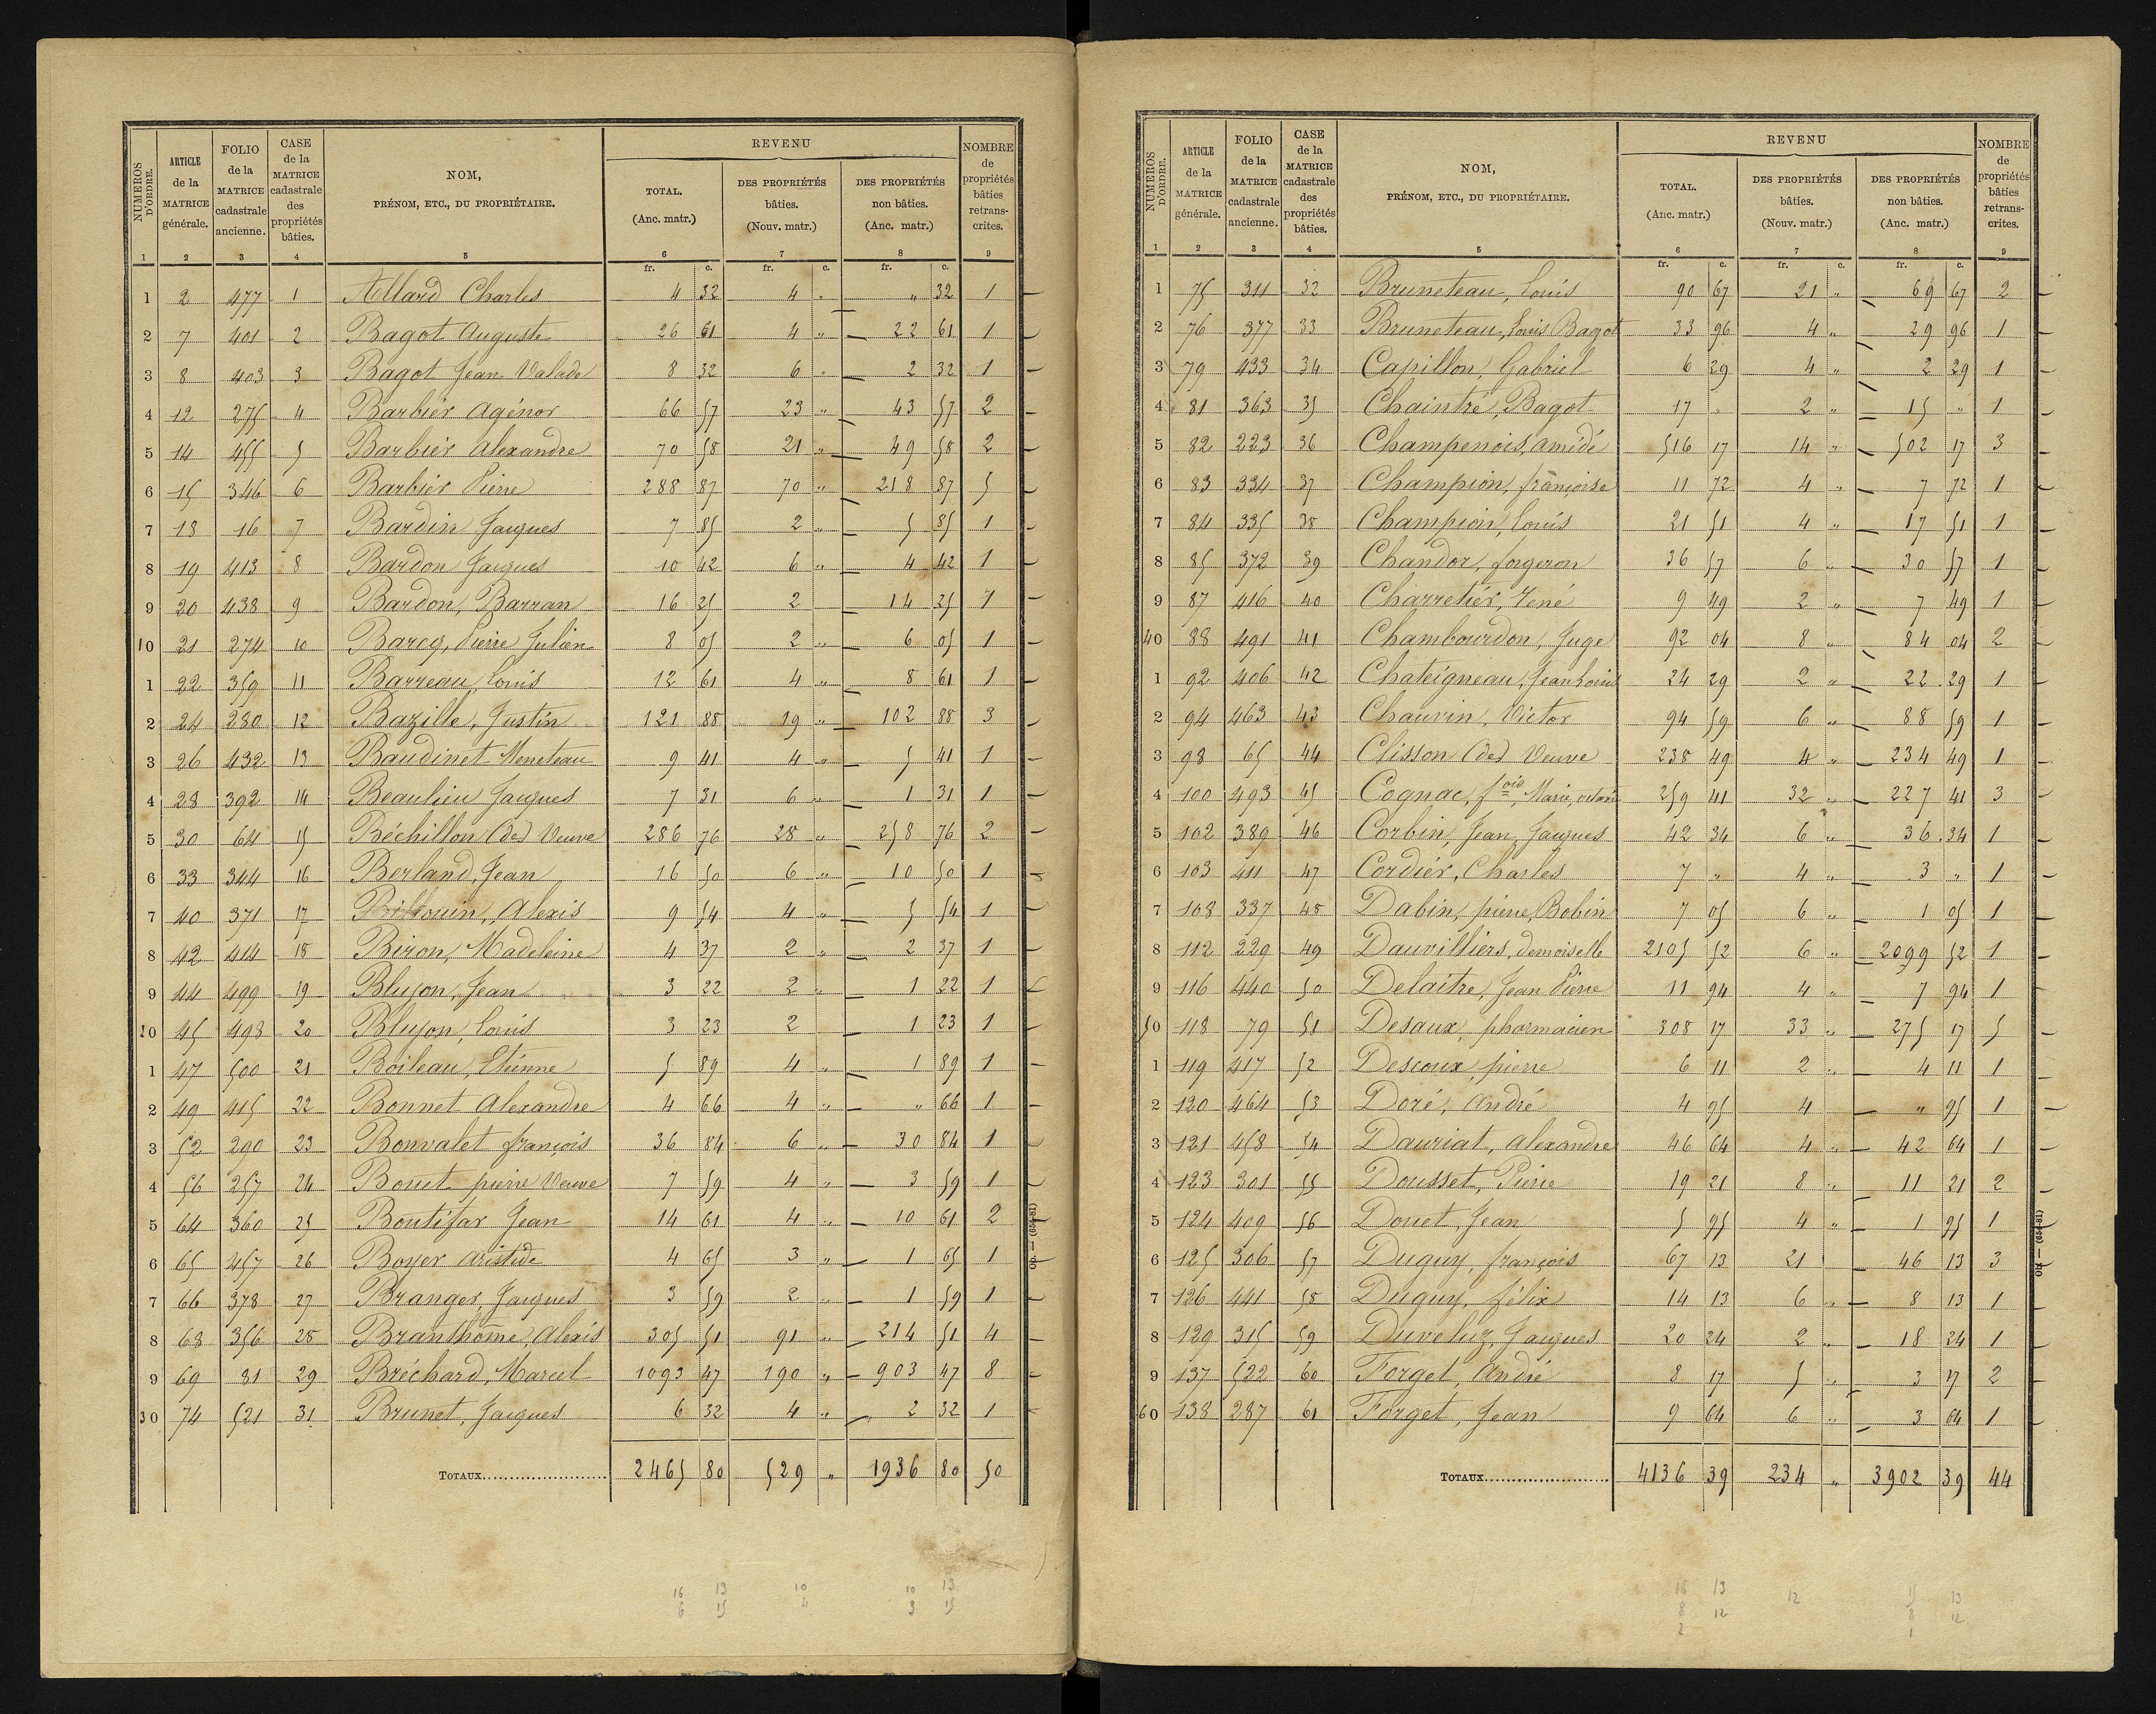 NUMÉROS D'ORDRE. | ARTICLE de la MATRICE générale. | FOLIO de la MATRICE cadastrale ancienne. | CASE de la MATRICE cadastrale des propriétés bâties. | NOM, PRÉNOM, ETC., DU PROPRIÉTAIRE. | REVENU TOTAL. (Anc. matr.) | DES PROPRIÉTÉS bâties. (Nouv. matr.) | DES PROPRIÉTÉS non bâties. (Anc. matr.) | NOMBRE de propriétés bâties retranscrites.
1 2 3 4 5 6 7 8 9
fr. c. fr. c. fr. c.
1 2 477 1 Allard Charles 4 32 4 " " 32 1
2 7 401 2 Bagot Auguste 26 61 4 " 22 61 1
3 8 403 3 Bagot Jean Valade 8 32 6 " 2 32 1
4 12 275 4 Barbier Agénor 66 57 23 " 43 57 2
5 14 455 5 Barbier Alexandre 70 58 21 " 49 58 2
6 15 346 6 Barbier Pierre 288 87 70 " 218 87 5
7 18 16 7 Bardin Jacques 7 85 2 " 5 85 1
8 19 413 8 Bardon Jacques 10 42 6 " 4 42 1
9 20 438 9 Bardon, Barran 16 25 2 14 25 1
10 21 274 10 Barcq, Pierre Julien 8 05 2 " 6 05 1
1 22 359 11 Barreau, Louis 12 61 4 " 8 61 1
2 24 280 12 Bazille, Justin 121 88 19 " 102 88 3
3 26 432 13 Baudinet Meneteau 9 41 4 " 5 41 1
4 28 392 14 Beaulieu Jacques 7 31 6 " 1 31 1
5 30 64 15 Béchillon (de) Veuve 286 76 28 " 258 76 2
6 33 344 16 Berland, Jean 16 50 6 " 10 50 1
7 40 371 17 Billouin, Alexis 9 54 4 " 5 54 1
8 42 414 18 Biron, Madeleine 4 37 2 " 2 37 1
9 44 499 19 Blujon, Jean 3 22 2 " 1 22 1
20 45 498 20 Blujon, Louis 3 23 2 1 23 1
1 47 500 21 Boileau, Etienne 5 89 4 " 1 89 1
2 49 415 22 Bonnet Alexandre 4 66 4 " " 66 1
3 52 290 23 Bonvalet françois 36 84 6 " 30 84 1
4 56 257 24 Bouet pierre Veuve 7 59 4 " 3 59 1
5 64 360 25 Boutifar Jean 14 61 4 " 10 61 2
6 65 457 26 Boyer Aristide 4 65 3 " 1 65 1
7 66 378 27 Branger, Jacques 3 59 2 " 1 59 1
8 68 356 28 Branthôme, Alexis 305 51 91 " 214 51 4
9 69 81 29 Bréchard, Marcel 1093 47 190 " 903 47 8
30 74 521 31 Brunet, Jacques 6 32 4 " 2 32 1
TOTAUX 2465 80 529 " 1936 80 50
16 13 10 10 13
6 15 4 3 15
NUMÉROS D'ORDRE. | ARTICLE de la MATRICE générale. | FOLIO de la MATRICE cadastrale ancienne. | CASE de la MATRICE cadastrale des propriétés bâties. | NOM, PRÉNOM, ETC., DU PROPRIÉTAIRE. | REVENU TOTAL. (Anc. matr.) | DES PROPRIÉTÉS bâties. (Nouv. matr.) | DES PROPRIÉTÉS non bâties. (Anc. matr.) | NOMBRE de propriétés bâties retranscrites.
1 2 3 4 5 6 7 8 9
fr. c. fr. c. fr. c.
1 75 311 32 Bruneteau, Louis 90 67 21 " 69 67 2
2 76 377 33 Bruneteau, Louis Bagot 33 96 4 " 29 96 1
3 79 433 34 Capillon, Gabriel 6 29 4 " 2 29 1
4 81 363 35 Chaintré, Bagot 17 " 2 " 15 " 1
5 82 223 36 Champenois, Amédé 516 17 14 " 502 17 3
6 83 334 37 Champion, françoise 11 72 4 " 7 72 1
7 84 335 38 Champion, Louis 21 51 4 " 17 51 1
8 85 372 39 Chandor, forgeron 36 57 6 " 30 57 1
9 87 416 40 Charretiér, René 9 49 2 " 7 49 1
40 88 491 41 Chambourdon, Juge 92 04 8 " 84 04 2
1 92 406 42 Chateigneau, Jean Louis 24 29 2 " 22 29 1
2 94 463 43 Chauvin, Victor 94 59 6 " 88 59 1
3 98 65 44 Clisson (de) Veuve 238 49 4 " 234 49 1
4 100 493 45 Cognac, fois, Marie, 259 41 32 " 227 41 3
5 102 389 46 Corbin, Jean, Jacques 42 34 6 " 36 34 1
6 103 411 47 Cordiér, Charles 7 " 4 " 3 " 1
7 108 337 48 Dabin, pierre, Bobin 7 05 6 " 1 05 1
8 112 229 49 Dauvilliers, demoiselle 2105 52 6 " 2099 52 1
9 116 440 50 Delaitre, Jean Pierre 11 94 4 " 7 94 1
50 118 79 51 Desaux, pharmacien 308 17 33 " 275 17 5
1 119 417 52 Descoux, pierre 6 11 2 " 4 11 1
2 120 464 53 Doré, André 4 95 4 " 95 1
3 121 458 54 Dauriat, Alexandre 46 64 4 " 42 64 1
4 123 301 55 Dousset, Pierre 19 21 8 " 11 21 2
5 124 409 56 Douet, Jean 5 95 4 " 1 95 1
6 125 306 57 Duguy, françois 67 13 21 46 13 3
7 126 441 58 Duguy, félix 14 13 6 " 8 13 1
8 129 315 59 Duveluz, Jacques 20 24 2 " 18 24 1
9 137 522 60 Forget, André 8 17 5 " 3 17 2
60 138 287 61 Forget, Jean 9 64 6 " 3 64 1
TOTAUX 4136 39 234 " 3902 39 44
16 13 12 15 13
8 12 8 12
2 1